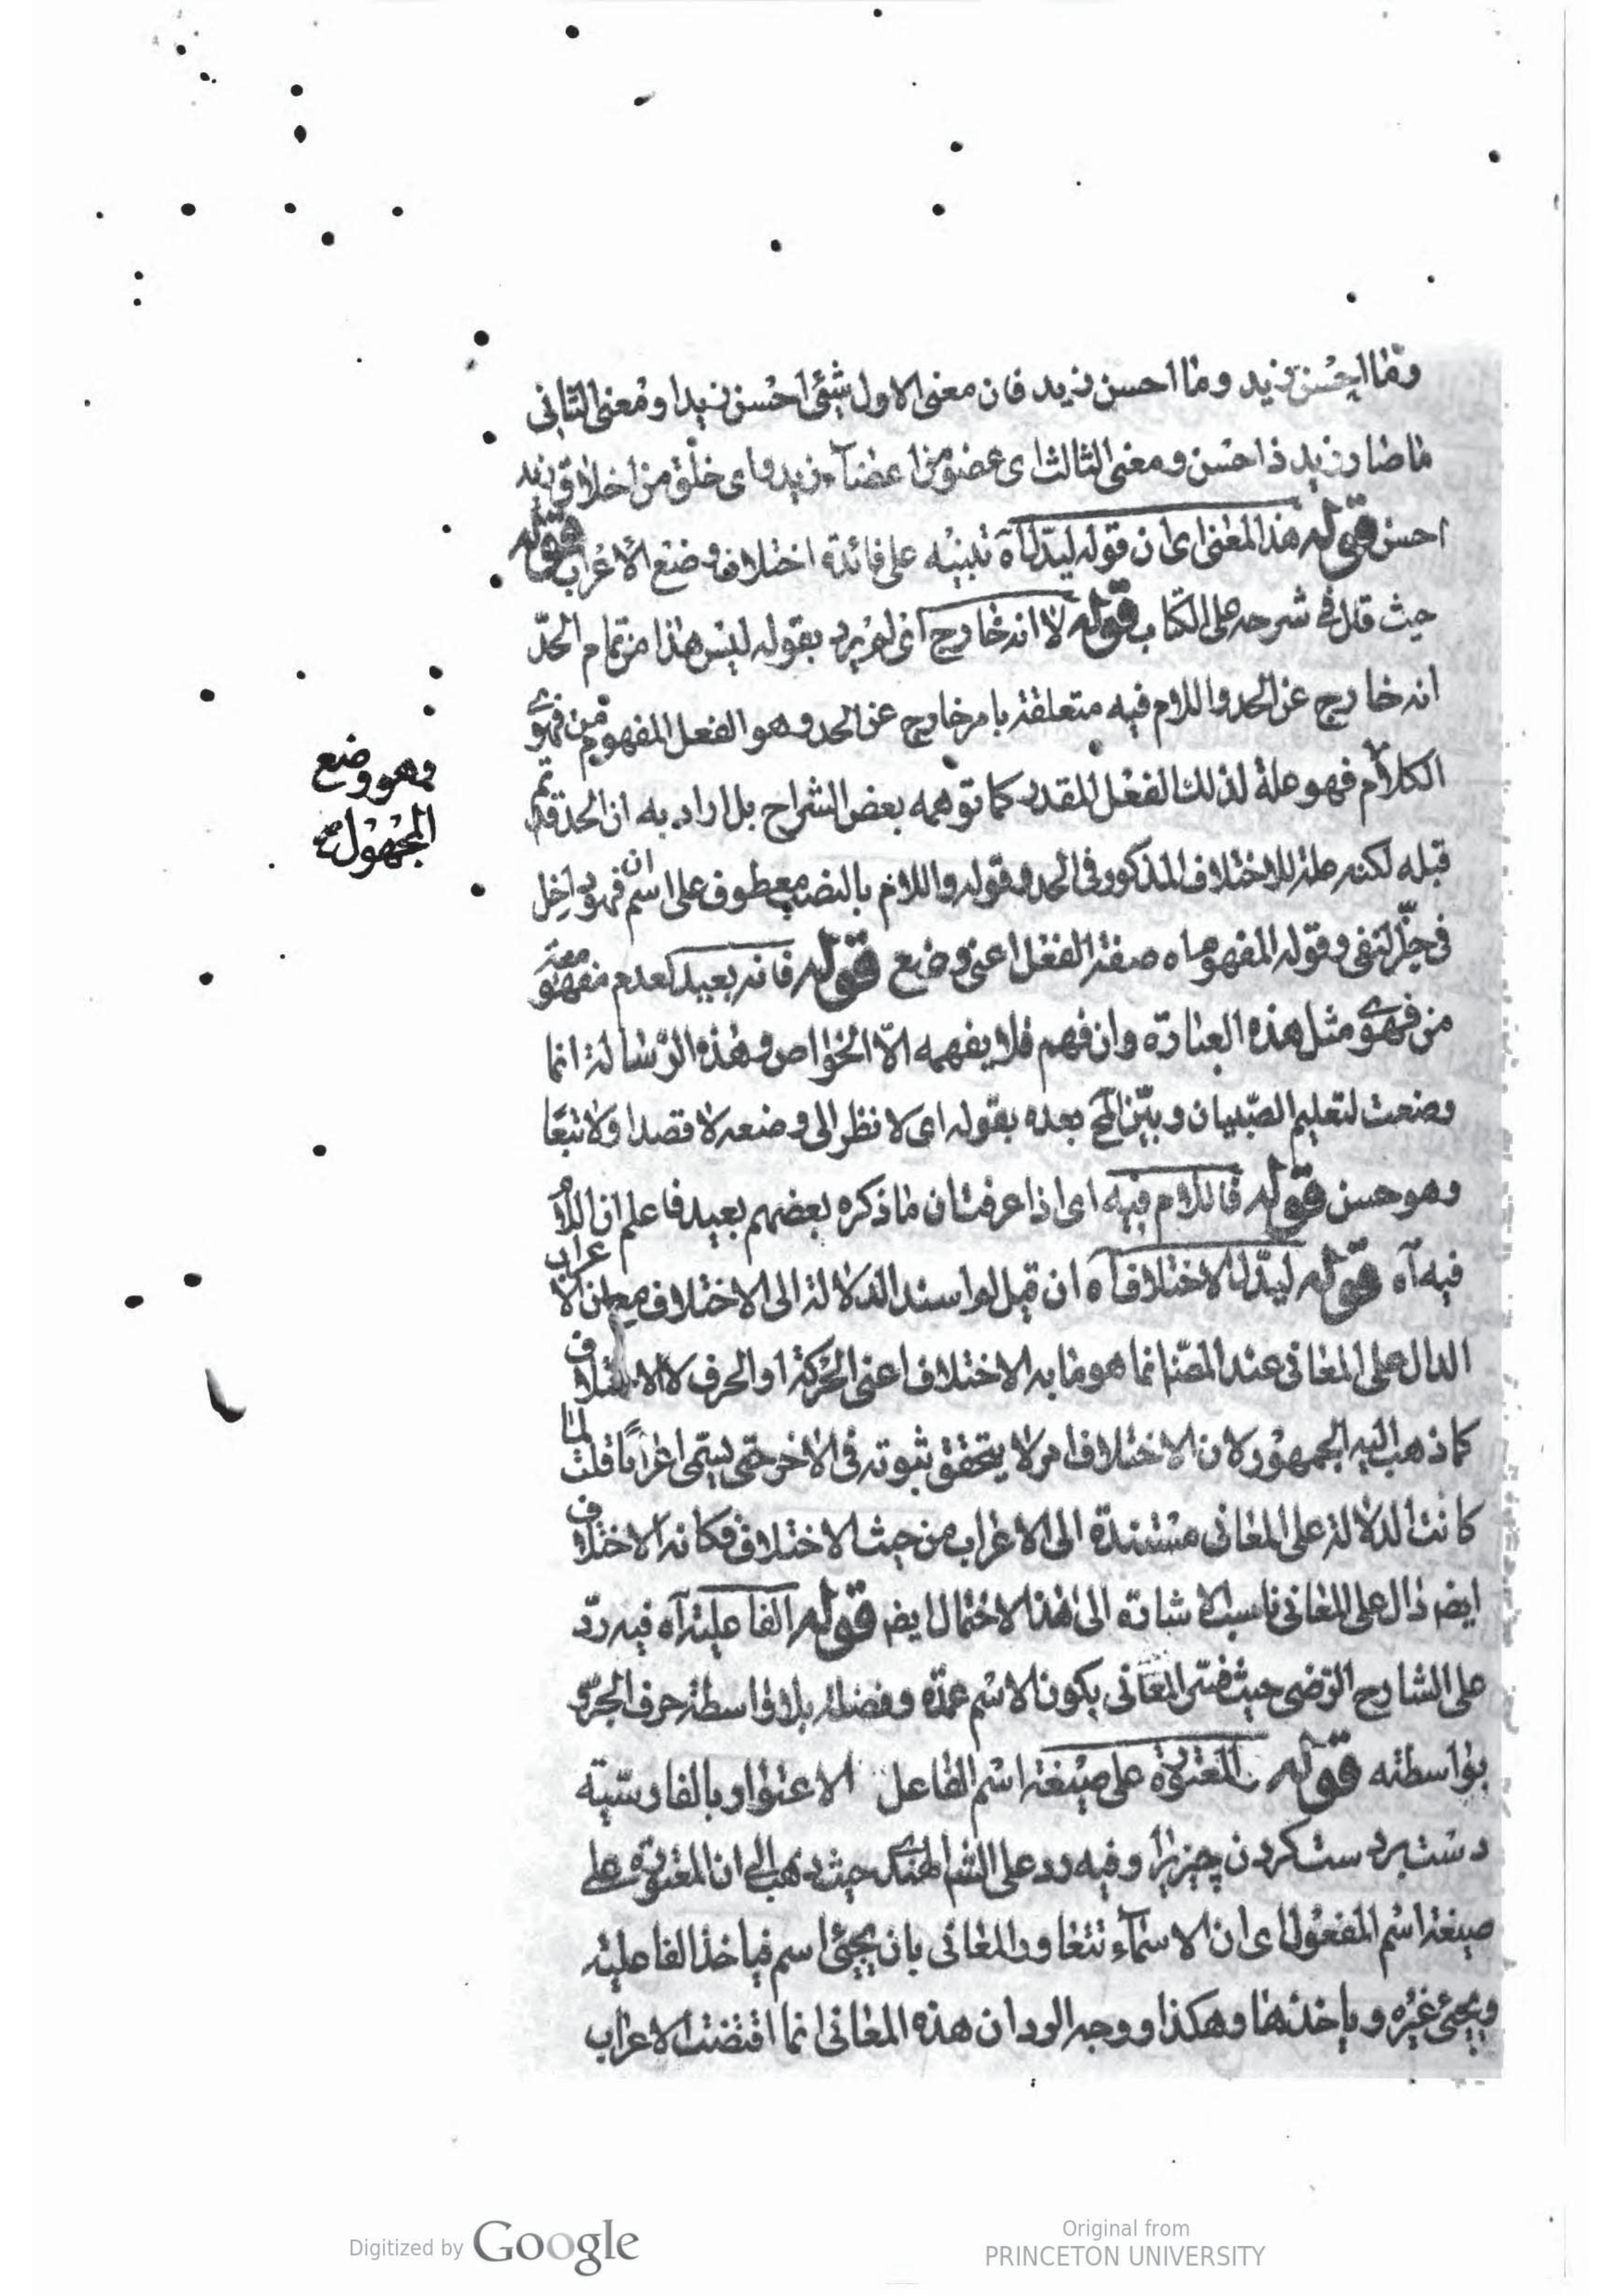 وما احسن زيد وما احسن زيد فان معنى الاول شيئ احسن زيدا ومعنى الثانى
ما صار زيد ذا حسن ومعنى الثالث اى عضو من اعضآء زيد واى خلق من اخلاق زيد
احسن قوله هذا المعنى اى ان قوله ليدل اه تنبيه على فائدة اختلاف وضع الاعراب قوله
حيث قال فى شرحه على الكتاب قوله لا انه خارج اى لم يرد بقوله ليس هذا من تمام الحدّ
انه خارج عن الحد واللام فيه متعلقة بامر خارج عن الحد وهو الفعل المفهوم من فحوى
الكلام فهو علة لذلك الفعل المقدر كما توهمه بعض الشراح بل اراد به ان الحد قد تم
قبله لكنه علة للاختلاف المذكور فى الحد وقوله واللام بالنصب معطوف على اسم ان فهو داخل
فى حيّز النفى وقوله المفهوم اه صفة الفعل اعنى وضع قوله فانه بعيد لعدم مفهوميته
من فحوى مثل هذه العبارة وان فهم فلا يفهمه الّا الخواص وهذه الرسالة انما
وضعت لتعليم الصّبيان وبيّن المح بعده بقوله اى لا نظر الى وضعه لا قصدا ولا تبعًا
وهو حسن قوله فاللام فيه اى اذا عرفت ان ما ذكره بعضهم بعيد فاعلم ان اللام
فيه آه قوله ليدّل الاختلاف آه ان قيل لو اسند الدلالة الى الاختلاف مع ان الاعراب
الدال على المعانى عند المصّ انما هو ما به الاختلاف اعنى الحركة او الحرف لا الاختلاف
كما ذهب اليه الجمهور لان الاختلاف امر لا يتحقق ثبوته فى الاخر حتى يسّمى اعرابًا قلت لما
كانت الدلالة على المعانى مستندة الى الاعراب من حيث الاختلاف فكانه الاختلاف
ايض دال على المعانى ناسب الاشارة الى هذا الاحتمال ايض قوله الفاعلية آه فيه ردّ
على الشارح الرّضى حيث فسّر المعانى بكون الاسم عمدة وفضلة بلا واسطة حرف الجرّ و
بواسطته قوله المعتورة على صيغة اسم الفاعل الاعتوار بالفارسّية
دست بردست كردن چيزيرا وفيه رد على الشا الهندى حيث ذهب الى ان المعتورة على
صيغة اسم المفعول اى ان الاسمآء تتعاور المعانى بان يجيئ اسم فياخذ الفاعلية
ويجيئ غيره وياخذها وهكذا ووجه الرد ان هذه المعانى انما اقتضت الاعراب
وهو وضع
المجهول